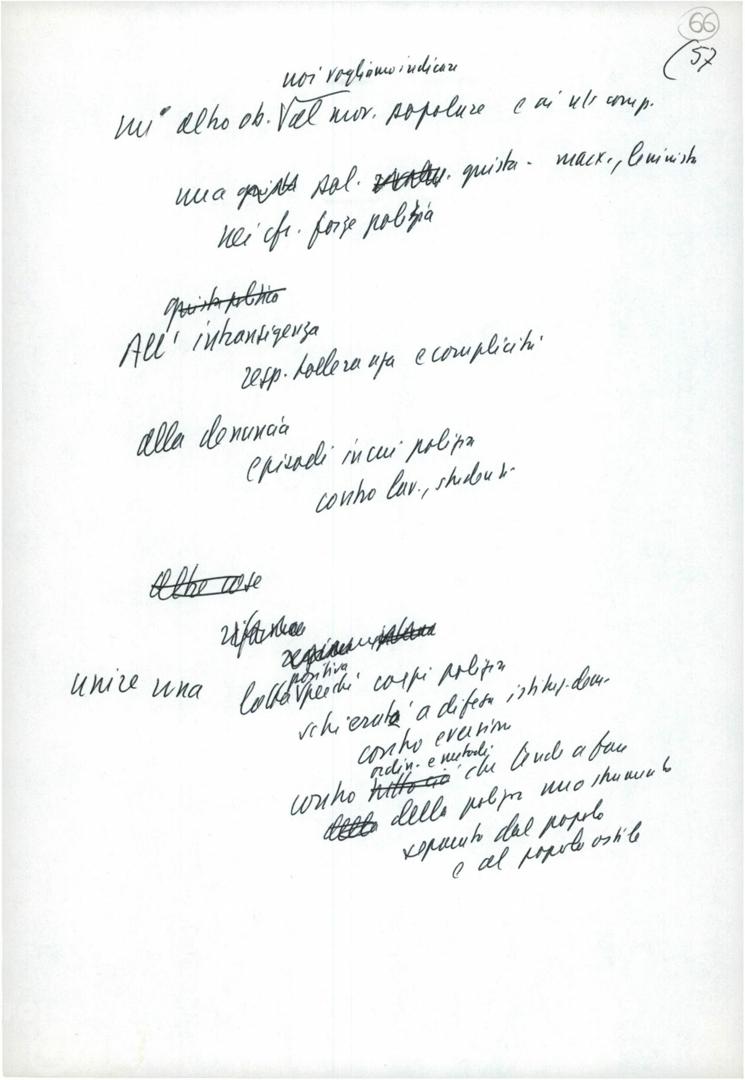 66
(57
noi vogliamo indicare
un altro ob. al mov. popolare e ai ns comp.
una giusta pol. giusta - marx., leninista
nei cfr. forze polizia
giusta politica
All' intransigenza
resp. tolleranza e complicità
alla denuncia
episodi in cui polizia
contro lav., studenti
altre cose
riforma
positiva
unire una lotta perché corpi polizia
schierati a difesa istituz. dem.
contro eversione
ordin. e metodi
contro tutto ciò che tende a fare
della della polizia uno strumento
separato dal popolo
e al popolo ostile